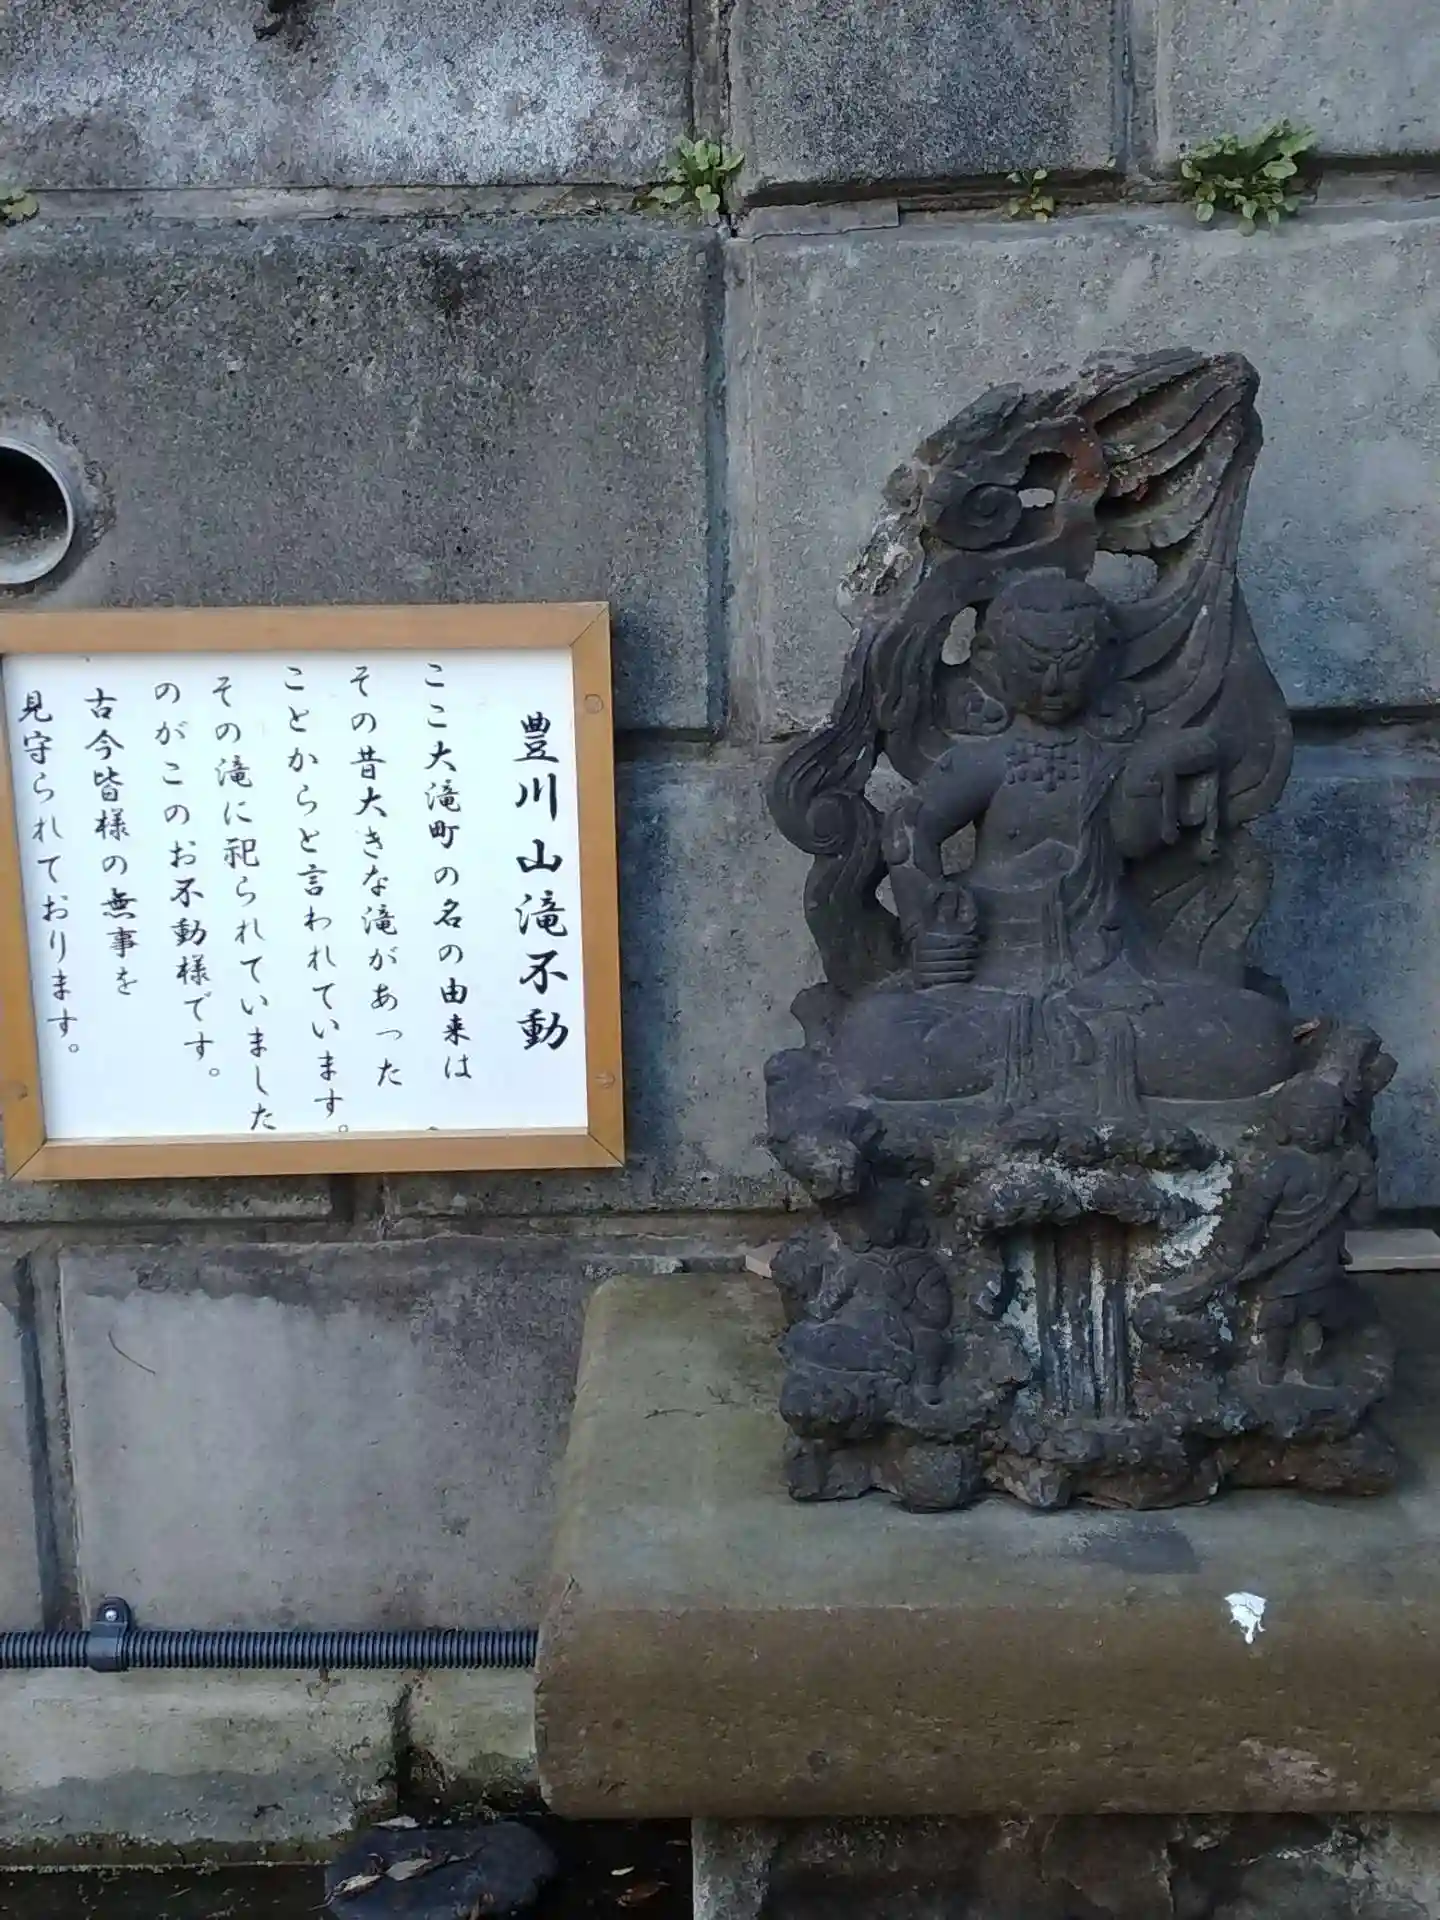 豊川山滝不動
ここ大滝町の名の由来は
その昔大きな滝があった
ことからと言われています。
その滝に祀られていました
のがこのお不動様です。
古今皆様の無事を
見守られております。